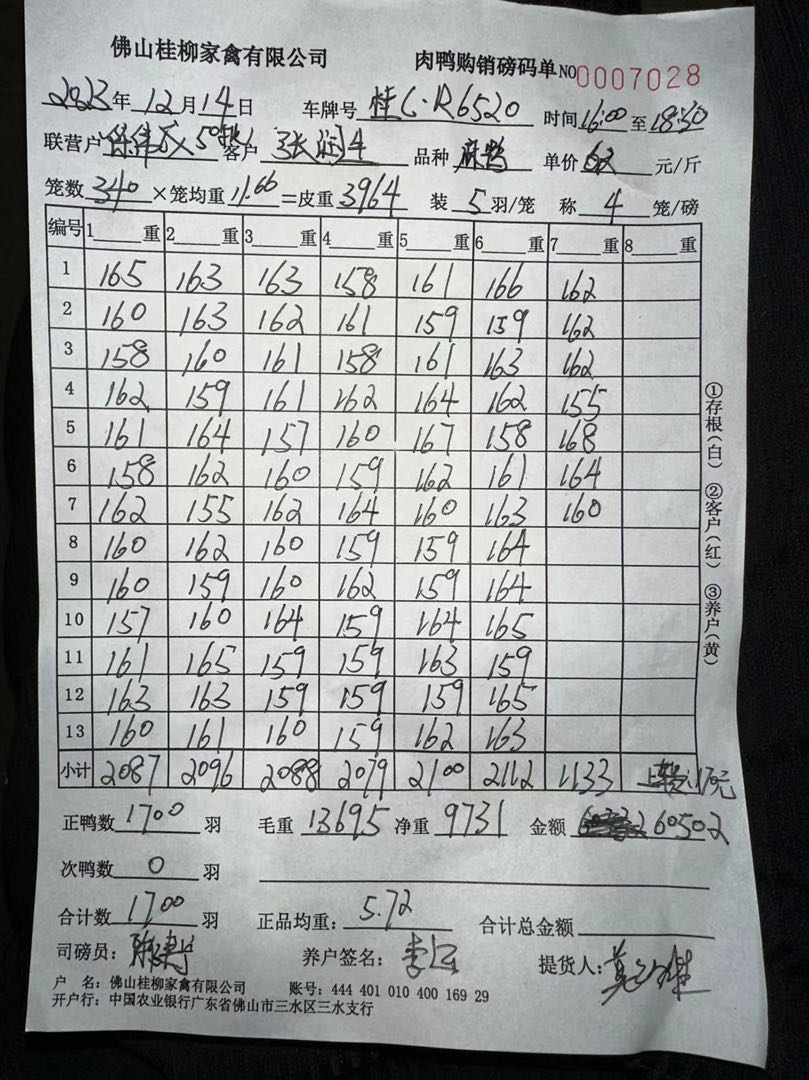 佛山桂柳家禽有限公司 肉鸭购销磅码单 NO 0007028
2023年12月14日 车牌号 桂C·R6520 时间16:00至18:30
联营户 客户 品种 麻鸭 单价 6.2 元/斤
笼数340×笼均重11.66=皮重3964 装5羽/笼 称4笼/磅
编号 1 重 2 重 3 重 4 重 5 重 6 重 7 重 8 重
1 165 163 163 158 161 166 162
2 160 163 162 161 159 159 162
3 158 160 161 158 161 163 162
4 162 159 161 162 164 162 155
5 161 164 157 160 167 158 168
6 158 162 160 159 162 161 164
7 162 155 162 164 160 163 160
8 160 162 160 159 159 164
9 160 159 160 162 159 164
10 157 160 164 159 164 165
11 161 165 159 159 163 159
12 163 163 159 159 159 165
13 160 161 160 159 162 163
小计 2087 2096 2088 2079 2100 2112 1133 170元
正鸭数1700羽 毛重13695 净重9731 金额 60502
次鸭数0羽
合计数1700羽 正品均重:5.72 合计总金额
司磅员: 养户签名: 提货人:
户 名:佛山桂柳家禽有限公司 账号:444 401 010 400 169 29
开户行:中国农业银行广东省佛山市三水区三水支行
①存根(白) ②客户(红) ③养户(黄)